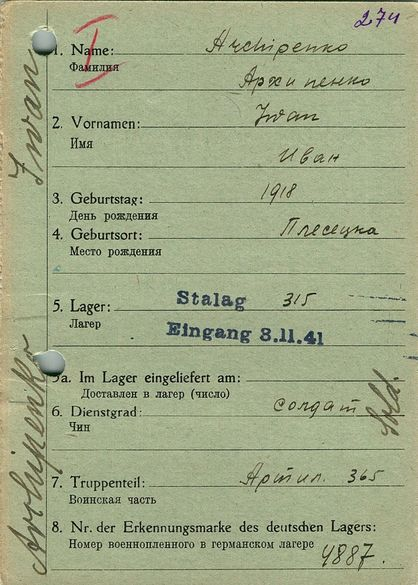 274
I
1. Name: Archipenko
Фамилия
Архипенко
2. Vornamen: Iwan
Имя
Иван
3. Geburtstag: 1918
День рождения
4. Geburtsort: Плесецка
Место рождения
5. Lager: Stalag 315
Лагер
Eingang 8.11.41
5a. Im Lager eingeliefert am:
Доставлен в лагер (число)
6. Dienstgrad: солдат Sold.
Чин
7. Truppenteil: Артил. 365
Воинская часть
8. Nr. der Erkennungsmarke des deutschen Lagers:
Номер военнопленного в германском лагере
4887.
Archipenko Iwan